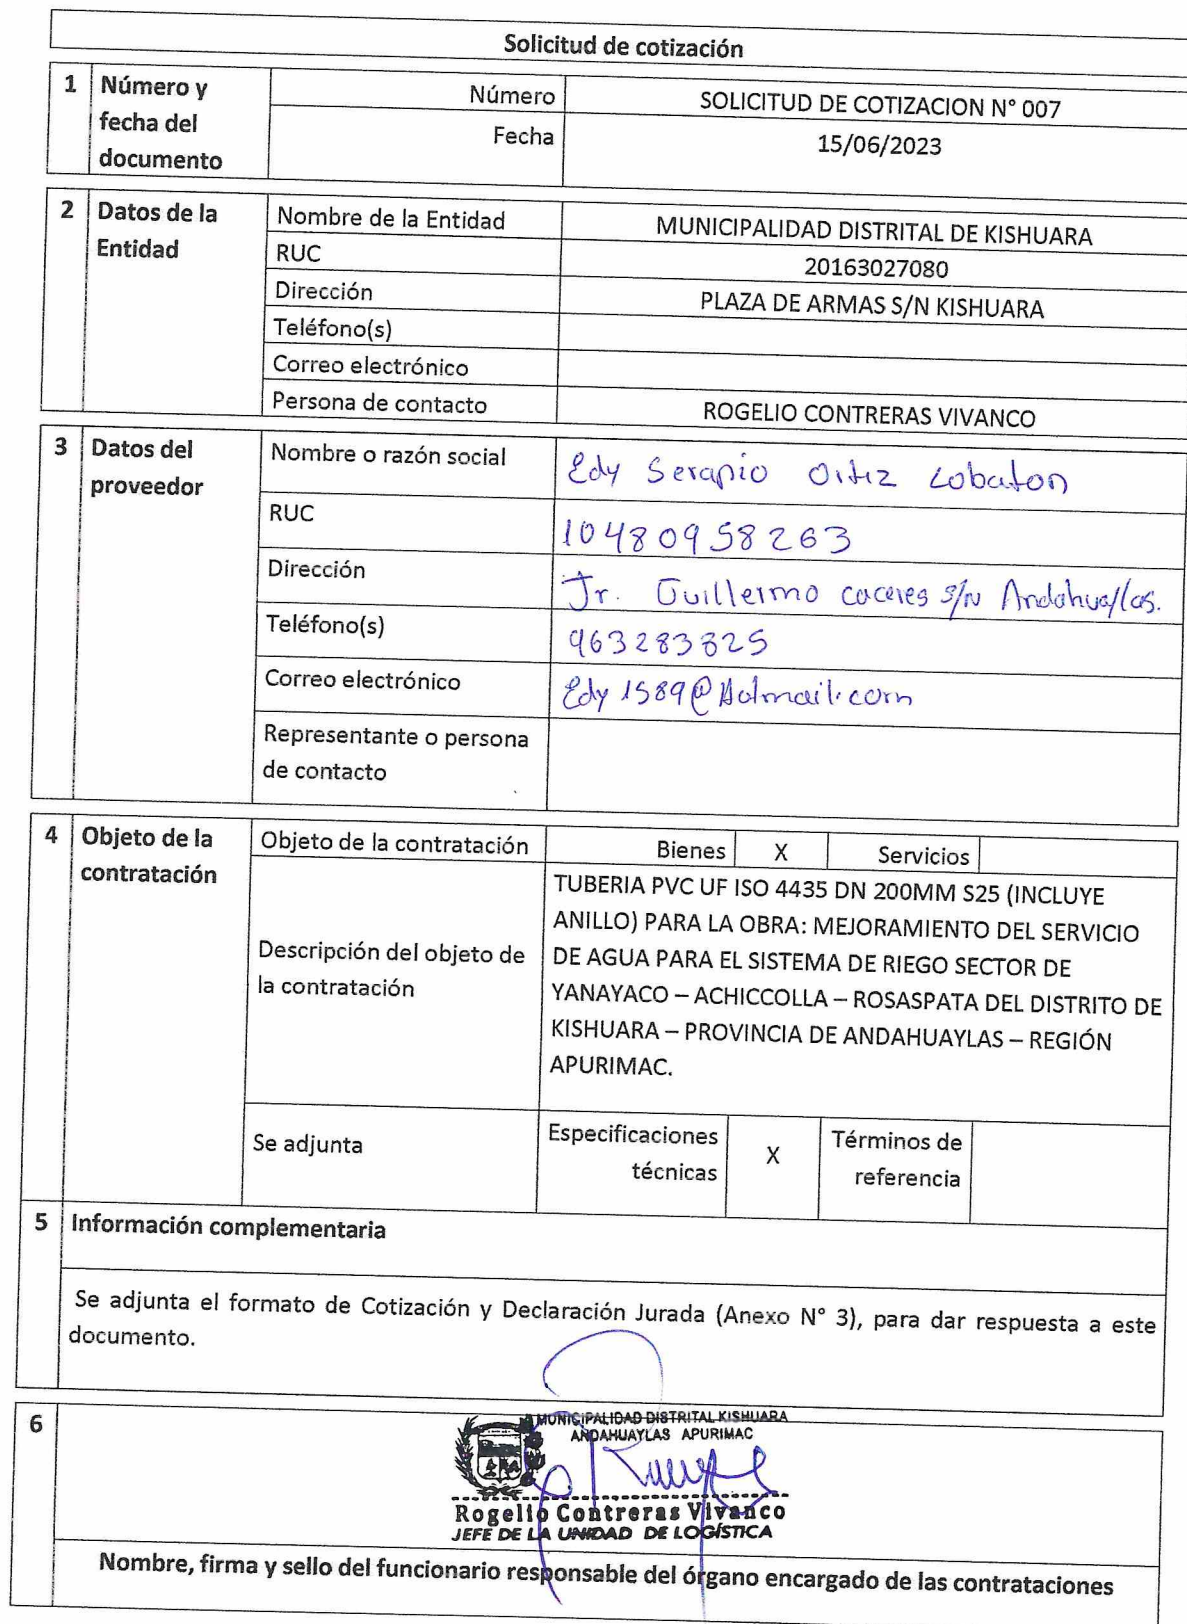 Solicitud de cotización
1 Número y fecha del documento
Número SOLICITUD DE COTIZACION N° 007
Fecha 15/06/2023
2 Datos de la Entidad
Nombre de la Entidad MUNICIPALIDAD DISTRITAL DE KISHUARA
RUC 20163027080
Dirección PLAZA DE ARMAS S/N KISHUARA
Teléfono(s)
Correo electrónico
Persona de contacto ROGELIO CONTRERAS VIVANCO
3 Datos del proveedor
Nombre o razón social Edy Serapio Ortiz Lobaton
RUC 10480958263
Dirección Jr. Guillermo caceres s/N Andahuaylas.
Teléfono(s) 963283825
Correo electrónico Edy1589@Hotmail.com
Representante o persona
de contacto
4 Objeto de la contratación
Objeto de la contratación Bienes X Servicios
Descripción del objeto de
la contratación
TUBERIA PVC UF ISO 4435 DN 200MM S25 (INCLUYE
ANILLO) PARA LA OBRA: MEJORAMIENTO DEL SERVICIO
DE AGUA PARA EL SISTEMA DE RIEGO SECTOR DE
YANAYACO – ACHICCOLLA – ROSASPATA DEL DISTRITO DE
KISHUARA – PROVINCIA DE ANDAHUAYLAS – REGIÓN
APURIMAC.
Se adjunta
Especificaciones
técnicas
X
Términos de
referencia
5 Información complementaria
Se adjunta el formato de Cotización y Declaración Jurada (Anexo N° 3), para dar respuesta a este
documento.
6
MUNICIPALIDAD DISTRITAL KISHUARA
ANDAHUAYLAS APURIMAC
Rogelio Contreras Vivanco
JEFE DE LA UNIDAD DE LOGÍSTICA
Nombre, firma y sello del funcionario responsable del órgano encargado de las contrataciones